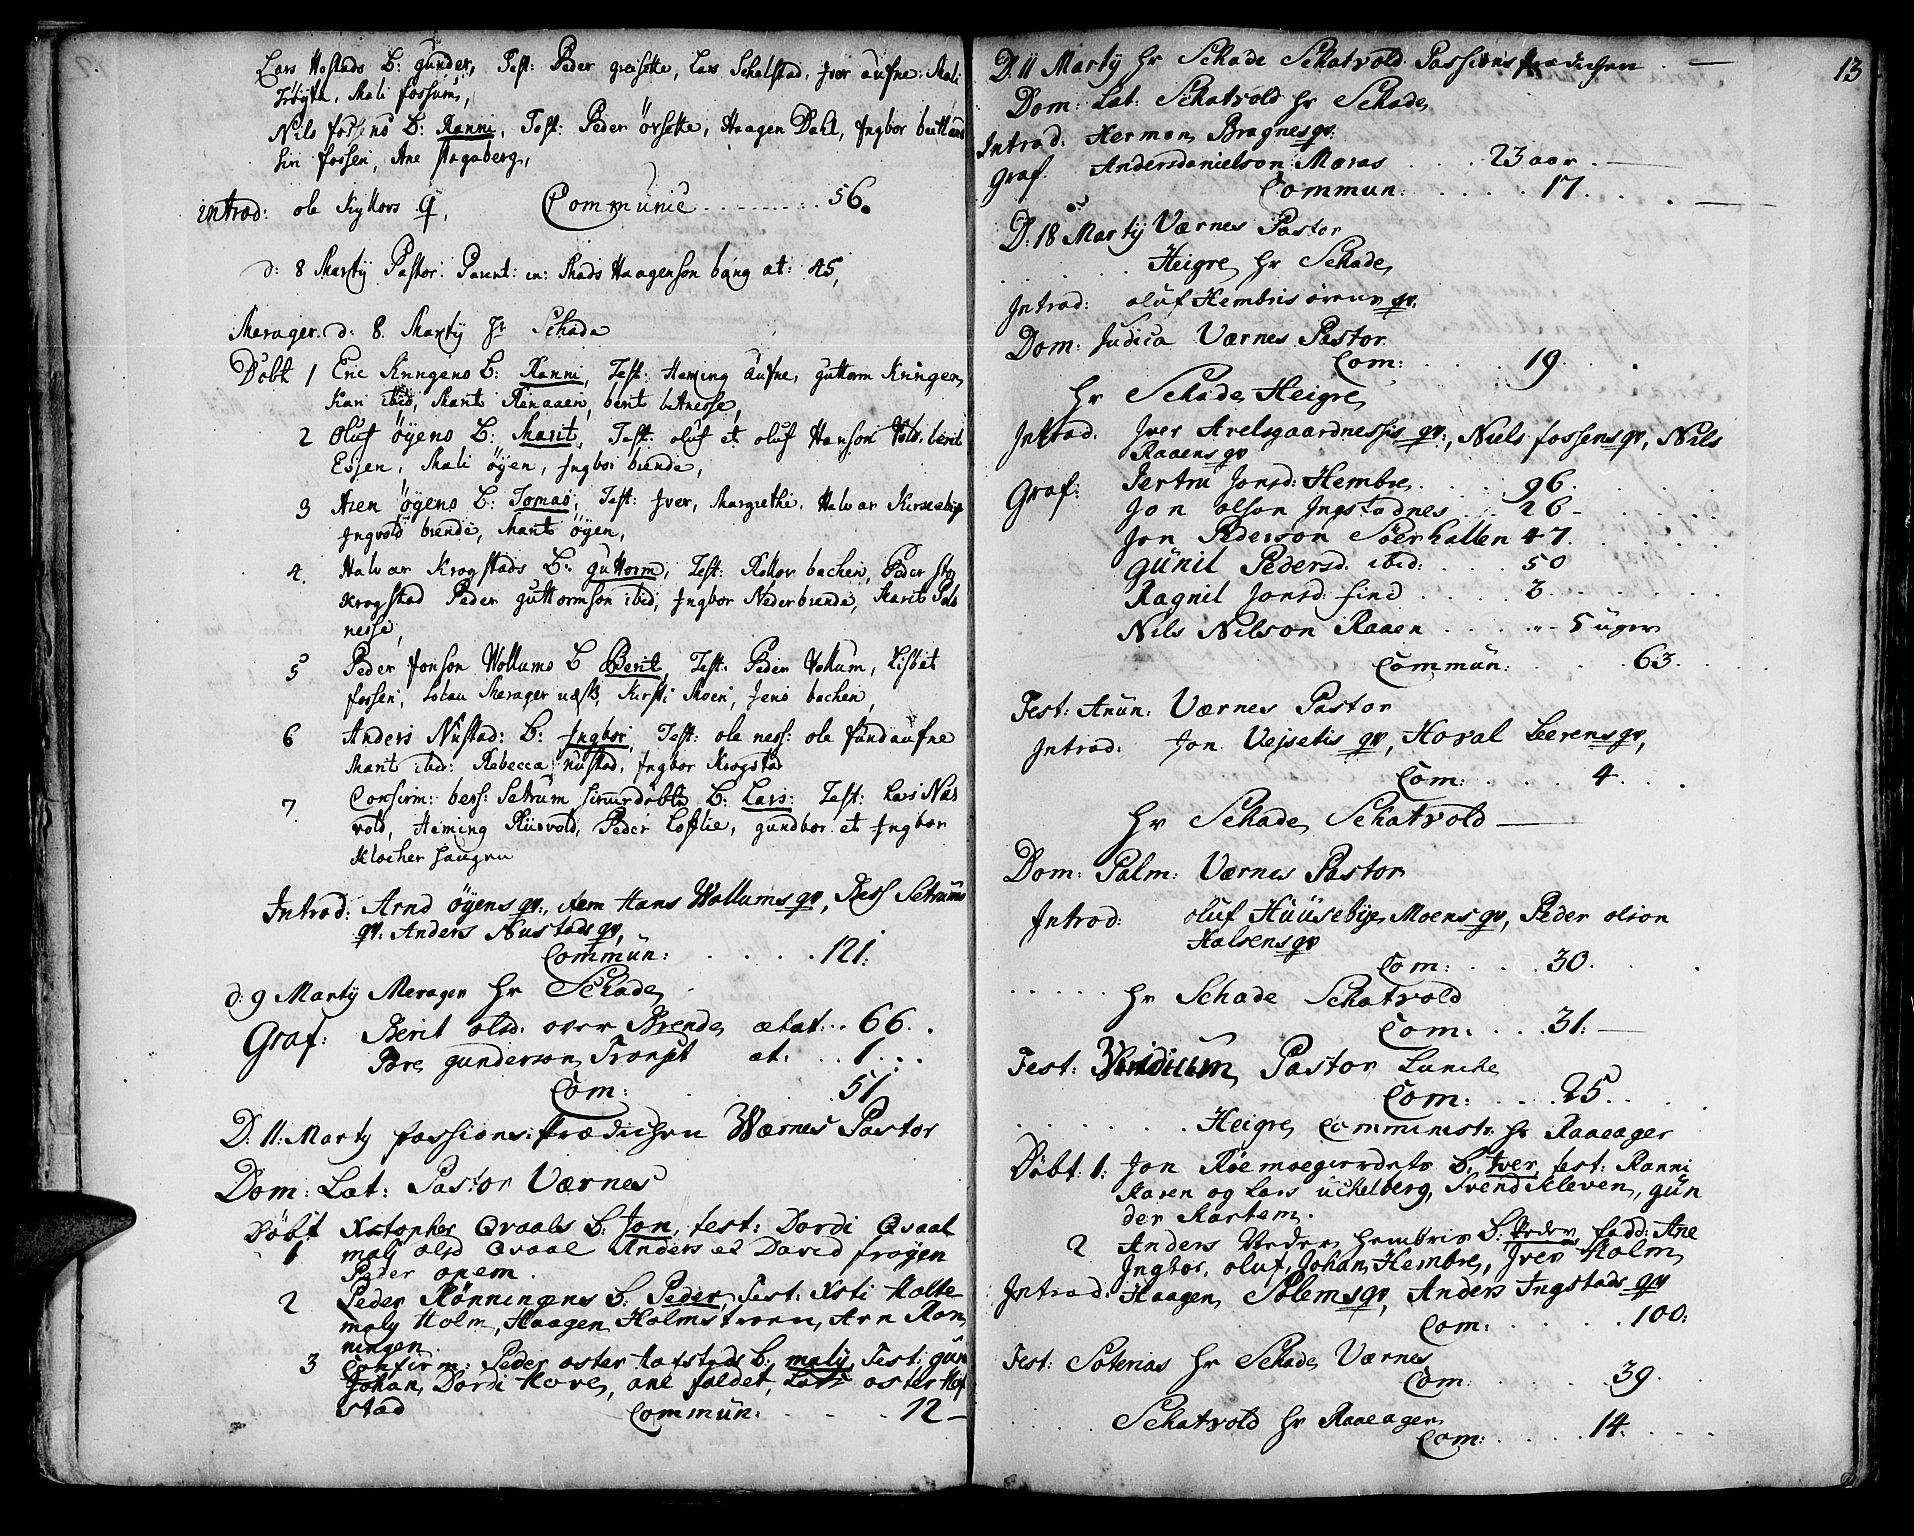 Lars Hostads B: gunder, Test: Peder greisette, Lars Schelstad, Jver aufne, Mali
Trøyte, Mali fossum,
Nils fossens B: Ranni, Test: Peder örsette, Haagen Dahl, Jngbor
Siri fossen, Ane stagaberg,
introd: ole Kyllors q, Communic ......... 56.
d: 8 Martij Pastor. Parent: in: Mads Haagenson bang æt: 45,
Merager d: 8. Martij Hr Schade
Döbt 1 Eric Kringens B: Ranni, Test: Heming aufne, guttorm Kringen,
Kari ibid, Marit Renaaen, berit
2 Oluf öyens B: Marit, Test: oluf et oluf Hanson Vols: berit
Essen, Mali öyen, Jngbor brende,
3 Aren öyens B: Tomas, Test: Jver, Margrethe, Halvar
Jngvold brende, Marit öyen,
4. Halvar Krogstads B: guttorm, Test: Kollor bachen, Peder
Krogstad Peder guttormson ibid, Jngbor Nederbrende, Marit
nesse,
5 Peder Jonson Wollums B Berit, Test: Peder Vollum, Lisbet
fossen, Merager Kirsti Moen, Jens bachen,
6 Anders Nustad: B: Jngbor, Test: ole ness: ole sundaufne
Marit ibid: Rebecca nustad, Jngbor Krogstad
7. Confirm: Setrum B: Lars: Test: Lars
vold, Heming Riisvold, Peder Lofflie, gundbor et Jngbor
Klocher haugen
Introd: Arnd öyens qv:, item Hans Wollums qv, Setrums
qv: Anders Nustads qv,
Commün: . . . . . 121:
d: 9 Martij Meragen Hr Schade
Graf: Berit olsd: over Brende ætat: . . 66. .
Pore gunderson Tronset æt: . . 1 . . .
Com: . . . . . 51
D: 11: Marty passions: prædichen Wærnes Pastor
Dom: Læt: Pastor Værnes
Döbt Xstopher Qvaals B: Jon, test: Dordi Qvaal
1 malj olsd Qvaal Anders et David frøyen
Peder opem.
2 Peder Rönningens B: Peder, Test: Xsti Holte
maly Holm, Haagen Holmstrøen, Arn Rön
ningen.
3 Confirm: Peder oster Hofstads B: maly, Test: gün
Johan, Dordi Hove, ane faldet, Lars oster Hof
stad Commün: . . . . 12 -
13
D: 11 Marty Hr Schade Schatvold Passions prædichen
Dom: Læt: Schatvold Hr Schade
Introd: Herman Bragnes qv:
Graf. Andersdanielson Moxas . . . . 23 aar.
Commun: . . . . . 17. . . .
D: 18 Martij Værnes Pastor
Heigre Hr Schade
Introd: oluf Hembris örens qv.
Dom: Judica Værnes Pastor.
Com: . . . . 19. . .
Hr Schade Heigre
Introd: Jver Arelsgaardnessis qv:, Niels fossens qv, Nils
Raaens qv
Graf: Jertru Jonsd: Hembre . . . . 96.
Jon olson Jngstadnes . . . 26 -
Jon Pederson Söerhallen 47.
Günil Pedersd. ibid: . . . . 50
Ragnil Jonsd: find . . . . . 3.
Nils Nilson Raaen . . . . - 5 üger
Commün: . . . . 63.
Fest: Anün: Værnes Pastor
Introd: Jon Vejsetis qv, Horal Leerens qv,
Com: . . . . 4. . .
Hr Schade Schatvold
Dom: Palm: Værnes Pastor
Introd: oluf Hüüsebye Moens qv, Peder olson
Halsens qv
Com: . . . 30.
Hr Schade Schatvold
Com: . . . 31:
Fest: Viridium Pastor Lunche
Com: . . . . 25.
. . . . . Heigre Comministr Hr Raaeager
Döbt 1: Jon Röemoegierdets B: Jver, test: Ranni
Karen og Lars uchelberg, Svend Kleven, gün
der Kartem.
2 Anders Hembris B: Peder, fadd: Ane
Jngbor, oluf, Johan Hembre, Jver Holm
Introd: Haagen Solems qv, Anders Jngstads qv
Com: . . . . . 100:
Fest: Soterias Hr Schade Værnes
Com: . . . . . 39.
Schatvold Hr Raaeager
Com: . . . . . 14.